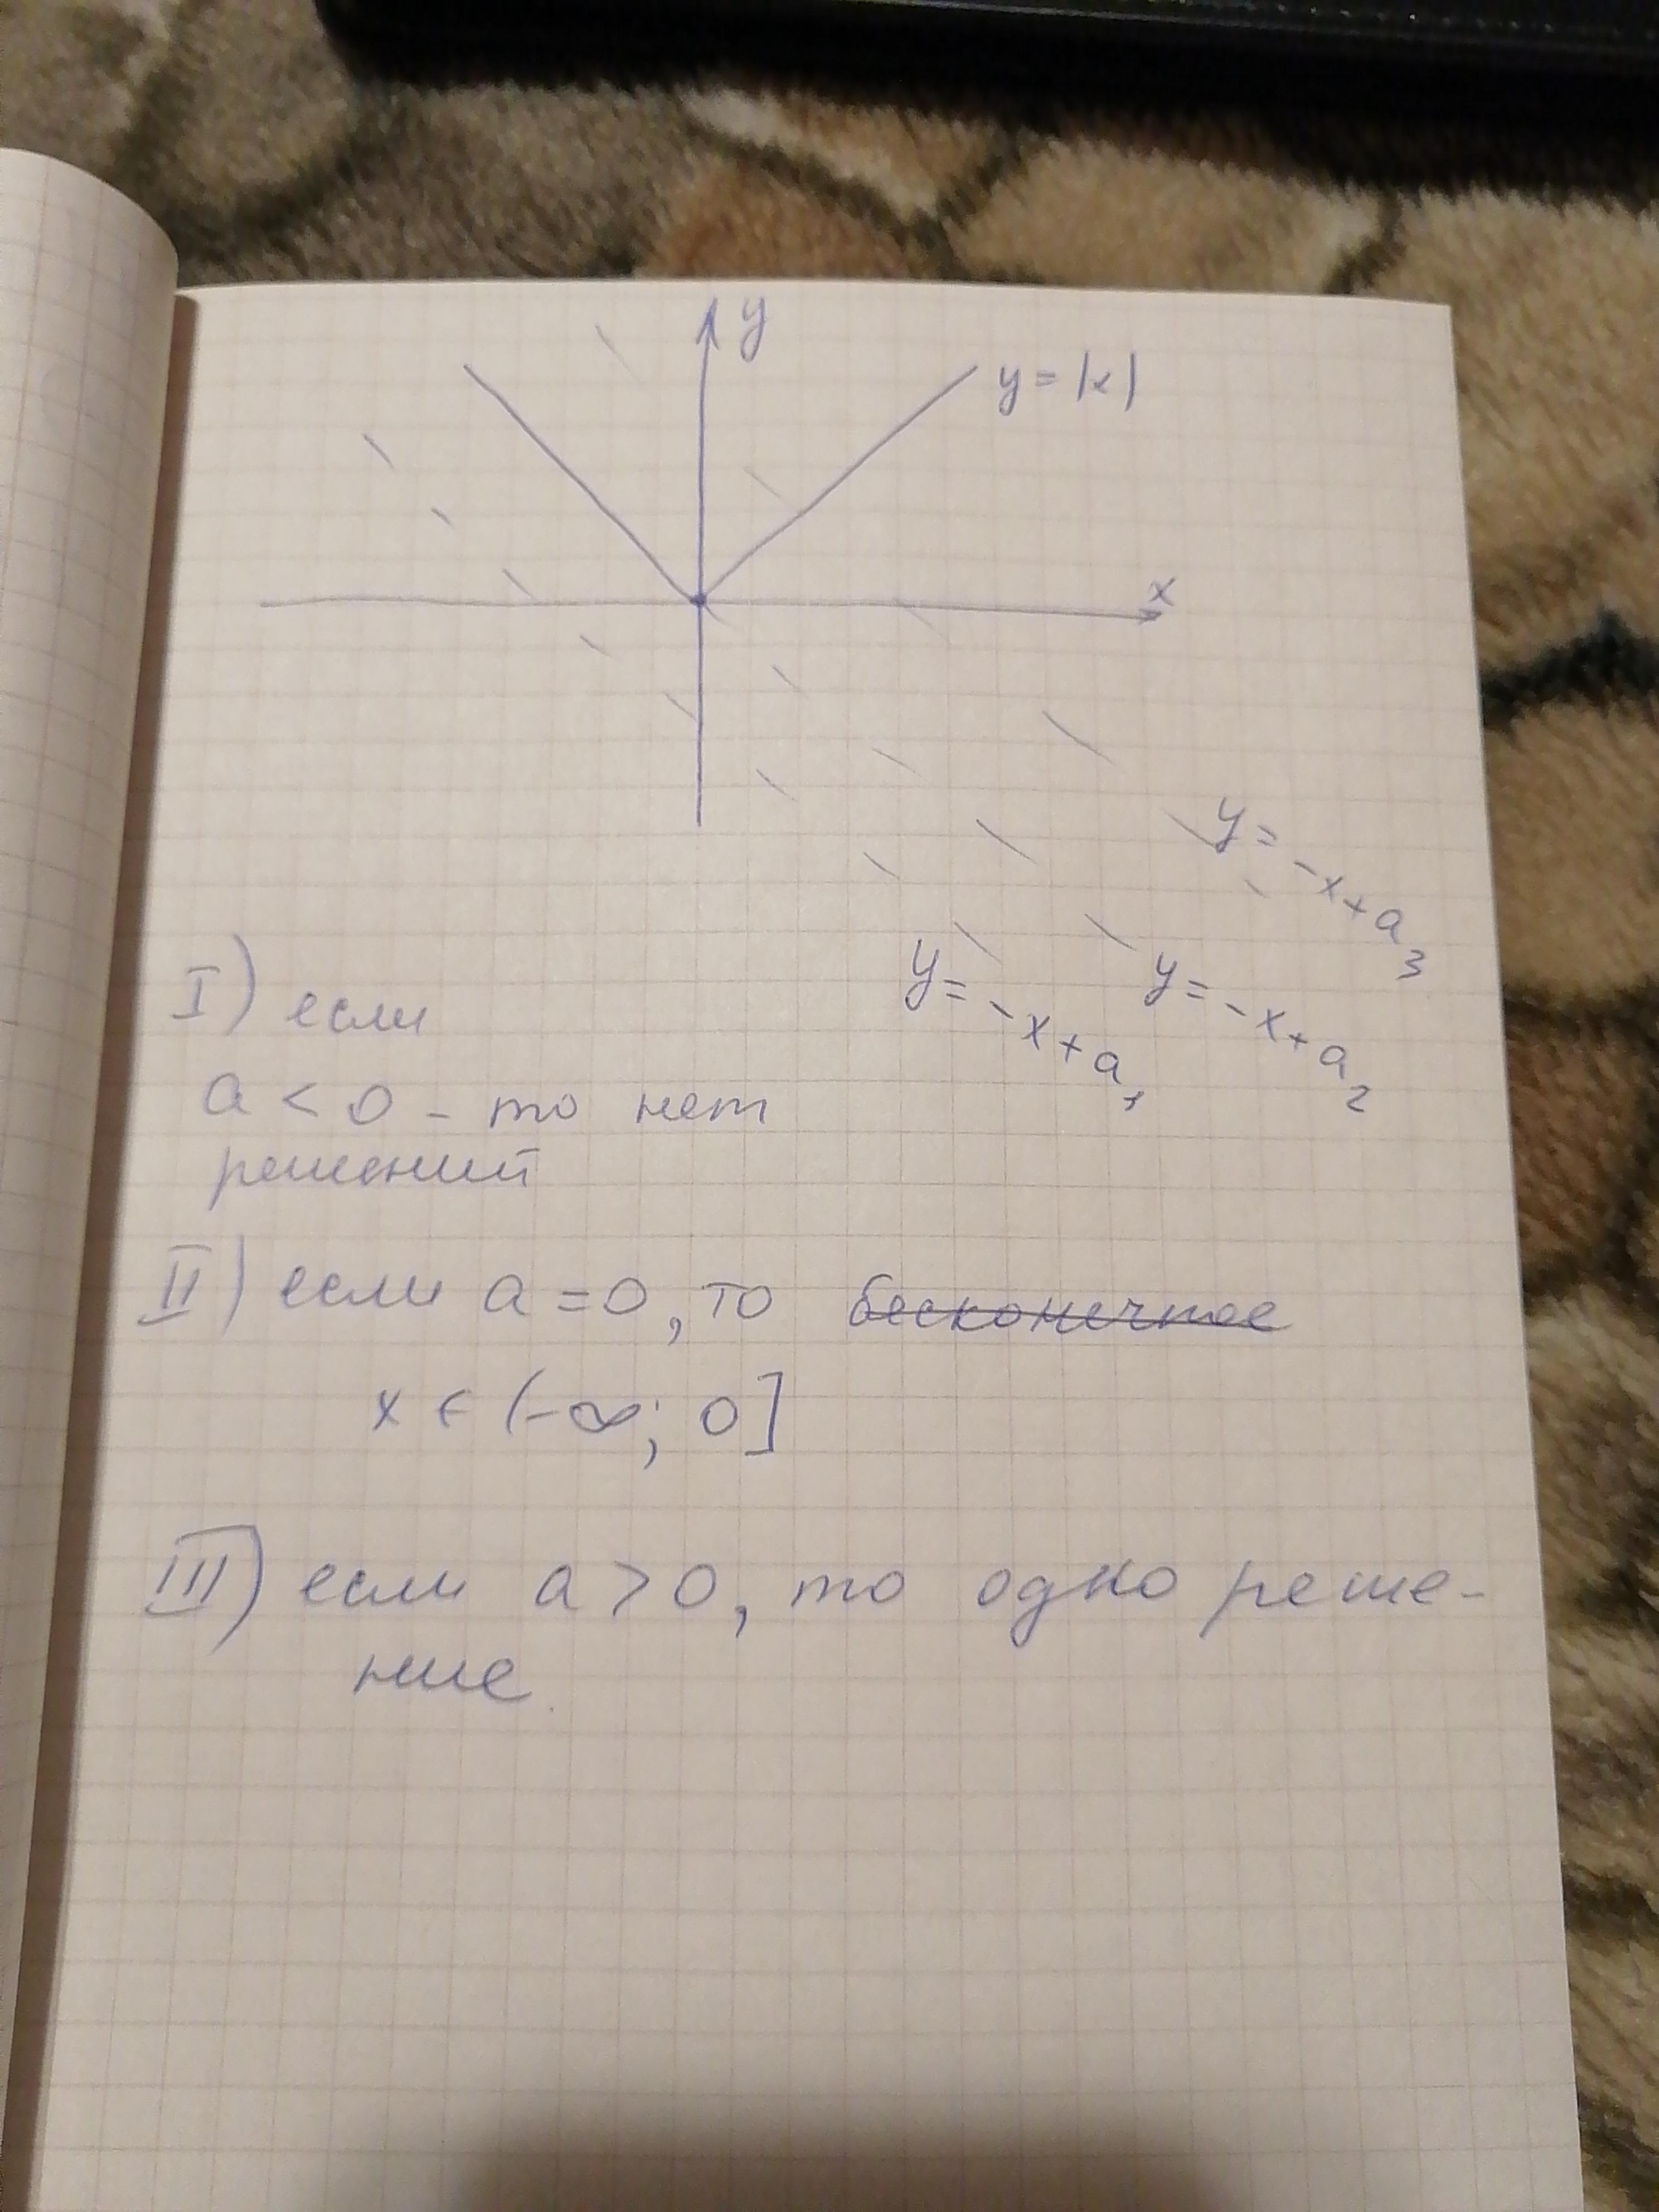 y
y = |x|
x
y = -x + a₃
y = -x + a₁
y = -x + a₂
I) если
a < 0 - то нет
решений
II) если a = 0, то бесконечное
x ∈ (-∞; 0]
III) если a > 0, то одно реше-
ние.